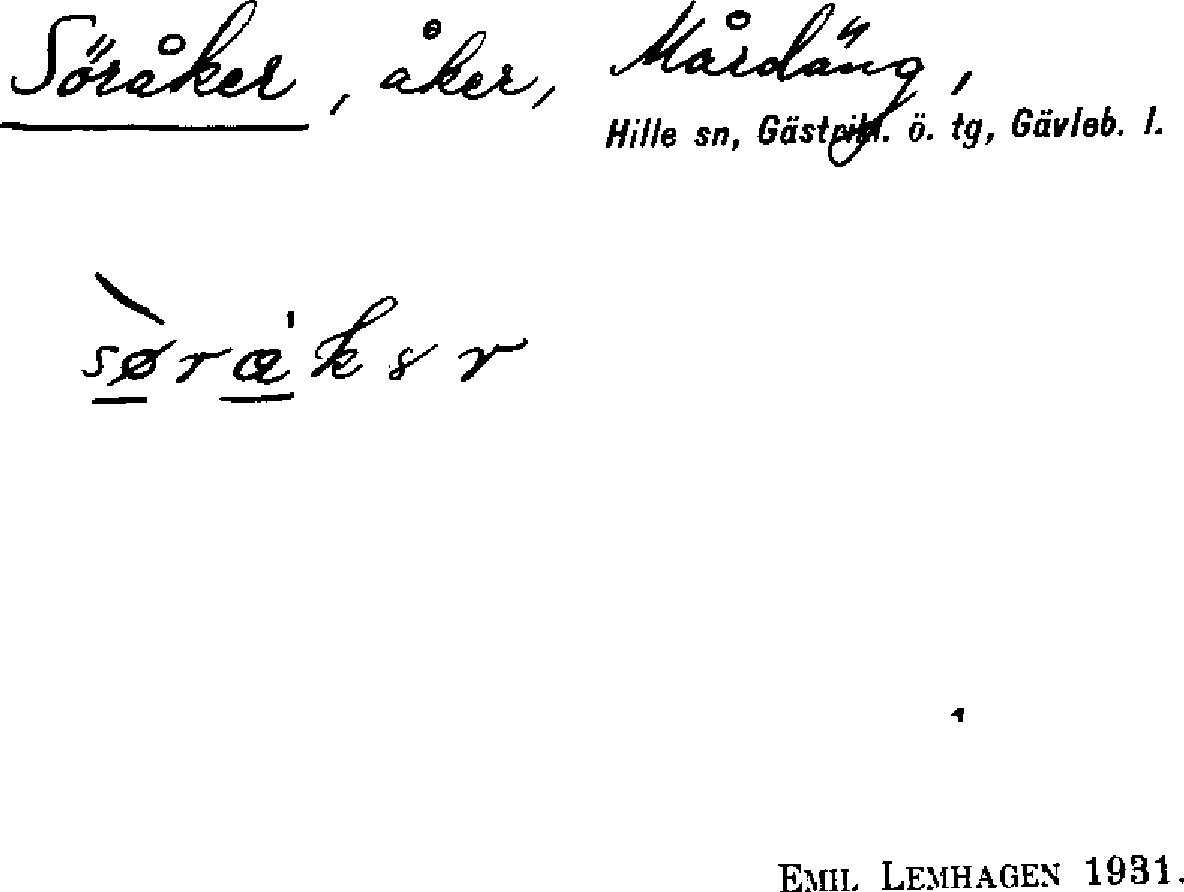 Söråker, åker, Mårdäng,
Hille sn, Gästrikl. ö. tg, Gävleb. l.
EMIL LEMHAGEN 1931.